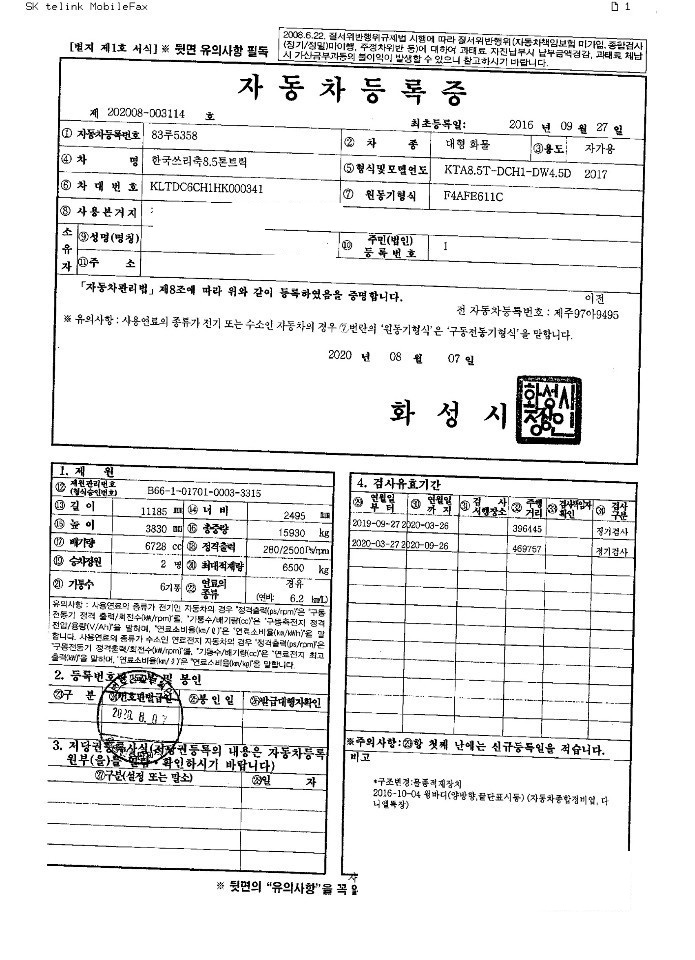 SK telink MobileFax
1
[별지 제1호 서식] ※ 뒷면 유의사항 필독
2008.6.22. 질서위반행위규제법 시행에 따라 질서위반행위(자동차책임보험 미가입, 종합검사
(정기/정밀)미이행, 주정차위반 등)에 대하여 과태료 자진납부시 납부금액경감, 과태료 체납
시 가산금부과등의 불이익이 발생할 수 있으니 참고하시기 바랍니다.
자동차등록증
제 202008-003114 호
최초등록일: 2016 년 09 월 27 일
① 자동차등록번호 83루5358 ② 차 종 대형 화물 ③용도 자가용
④ 차 명 한국쓰리축8.5톤트럭 ⑤형식및모델연도 KTA8.5T-DCH1-DW4.5D 2017
⑥ 차 대 번 호 KLTDC6CH1HK000341 ⑦ 원동기형식 F4AFE611C
⑧ 사 용 본 거 지 :
소유자 ⑨성명(명칭) ⑩ 주민(법인)등록번호 1
⑪주 소
「자동차관리법」 제8조에 따라 위와 같이 등록하였음을 증명합니다.
이전
전 자동차등록번호 : 제주97아9495
※ 유의사항 : 사용연료의 종류가 전기 또는 수소인 자동차의 경우 ⑦번란의 '원동기형식'은 '구동전동기형식'을 말합니다.
2020 년 08 월 07 일
화 성 시 화성시청장인
1. 제 원
⑫ 제원관리번호(형식승인번호) B66-1-01701-0003-3315
⑬ 길 이 11185 ㎜ ⑭ 너 비 2495 ㎜
⑮ 높 이 3830 ㎜ ⑯ 총중량 15930 kg
⑰ 배기량 6728 cc ⑱ 정격출력 280/2500Ps/rpm
⑲ 승차정원 2 명 ⑳ 최대적재량 6500 kg
㉑ 기통수 6기통 ㉒ 연료의 종류 경유 (연비: 6.2 ㎞/L)
유의사항 : 사용연료의 종류가 전기인 자동차의 경우 "정격출력(ps/rpm)"은 "구동
전동기 정격 출력/회전수(kW/rpm)"를, "기통수/배기량(cc)"은 "구동축전지 정격
전압/용량(V/Ah)"을 말하며, "연료소비율(km/ℓ)"은 "연료소비율(km/kWh)"을 말
합니다. 사용연료의 종류가 수소인 연료전지 자동차의 경우 "정격출력(ps/rpm)"은
"구동전동기 정격출력/회전수(kW/rpm)"를, "기통수/배기량(cc)"은 "연료전지 최고
출력(kW)"을 말하며, "연료소비율(km/ℓ)"은 "연료소비율(km/kg)"을 말합니다.
2. 등록번호판 교부 및 봉인
㉓구 분 ㉔번호판발급일 ㉕봉 인 일 ㉖발급대행자확인
2020. 8. 07
3. 저당권등록사실(저당권등록의 내용은 자동차등록
원부(을)를 열람·확인하시기 바랍니다)
㉗구분(설정 또는 말소) ㉘일 자
4. 검사유효기간
㉙ 연월일부터 ㉚ 연월일까지 ㉛ 검사시행장소 ㉜ 주행거리 ㉝ 검사책임자확인 ㉞ 검사구분
2019-09-27 2020-03-26 396445 정기검사
2020-03-27 2020-09-26 469757 정기검사
※주의사항:㉙항 첫째 난에는 신규등록일을 적습니다.
비고
*구조변경:물품적재장치
2016-10-04 윙바디(양방향,끝단표시등) (자동차종합정비업, 다
니엘특장)
※ 뒷면의 "유의사항"을 꼭 읽